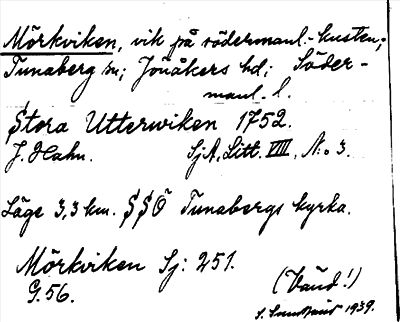 Mörkviken, vik på södermanl.-kusten;
Tunaberg sn; Jönåkers hd; Söder-
manl. l.
Stora Utterwiken 1752.
J. Hahn. SjA, Litt. VIII, N:o 3.
Läge 3,3 km. SSÖ Tunabergs kyrka.
Mörkviken Sj: 251.
G. 56. (Vänd!)
S. 1939.